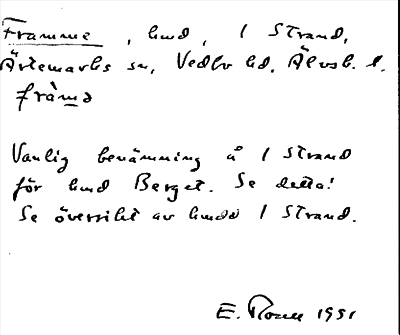 Framme, hmd, 1 Strand,
Ärtemarks sn, Vedbo hd, Älvsb. l.
fràmə
Vanlig benämning å 1 Strand
för hmd Berget. Se detta!
Se översikt av hmdd 1 Strand.
E. 1951